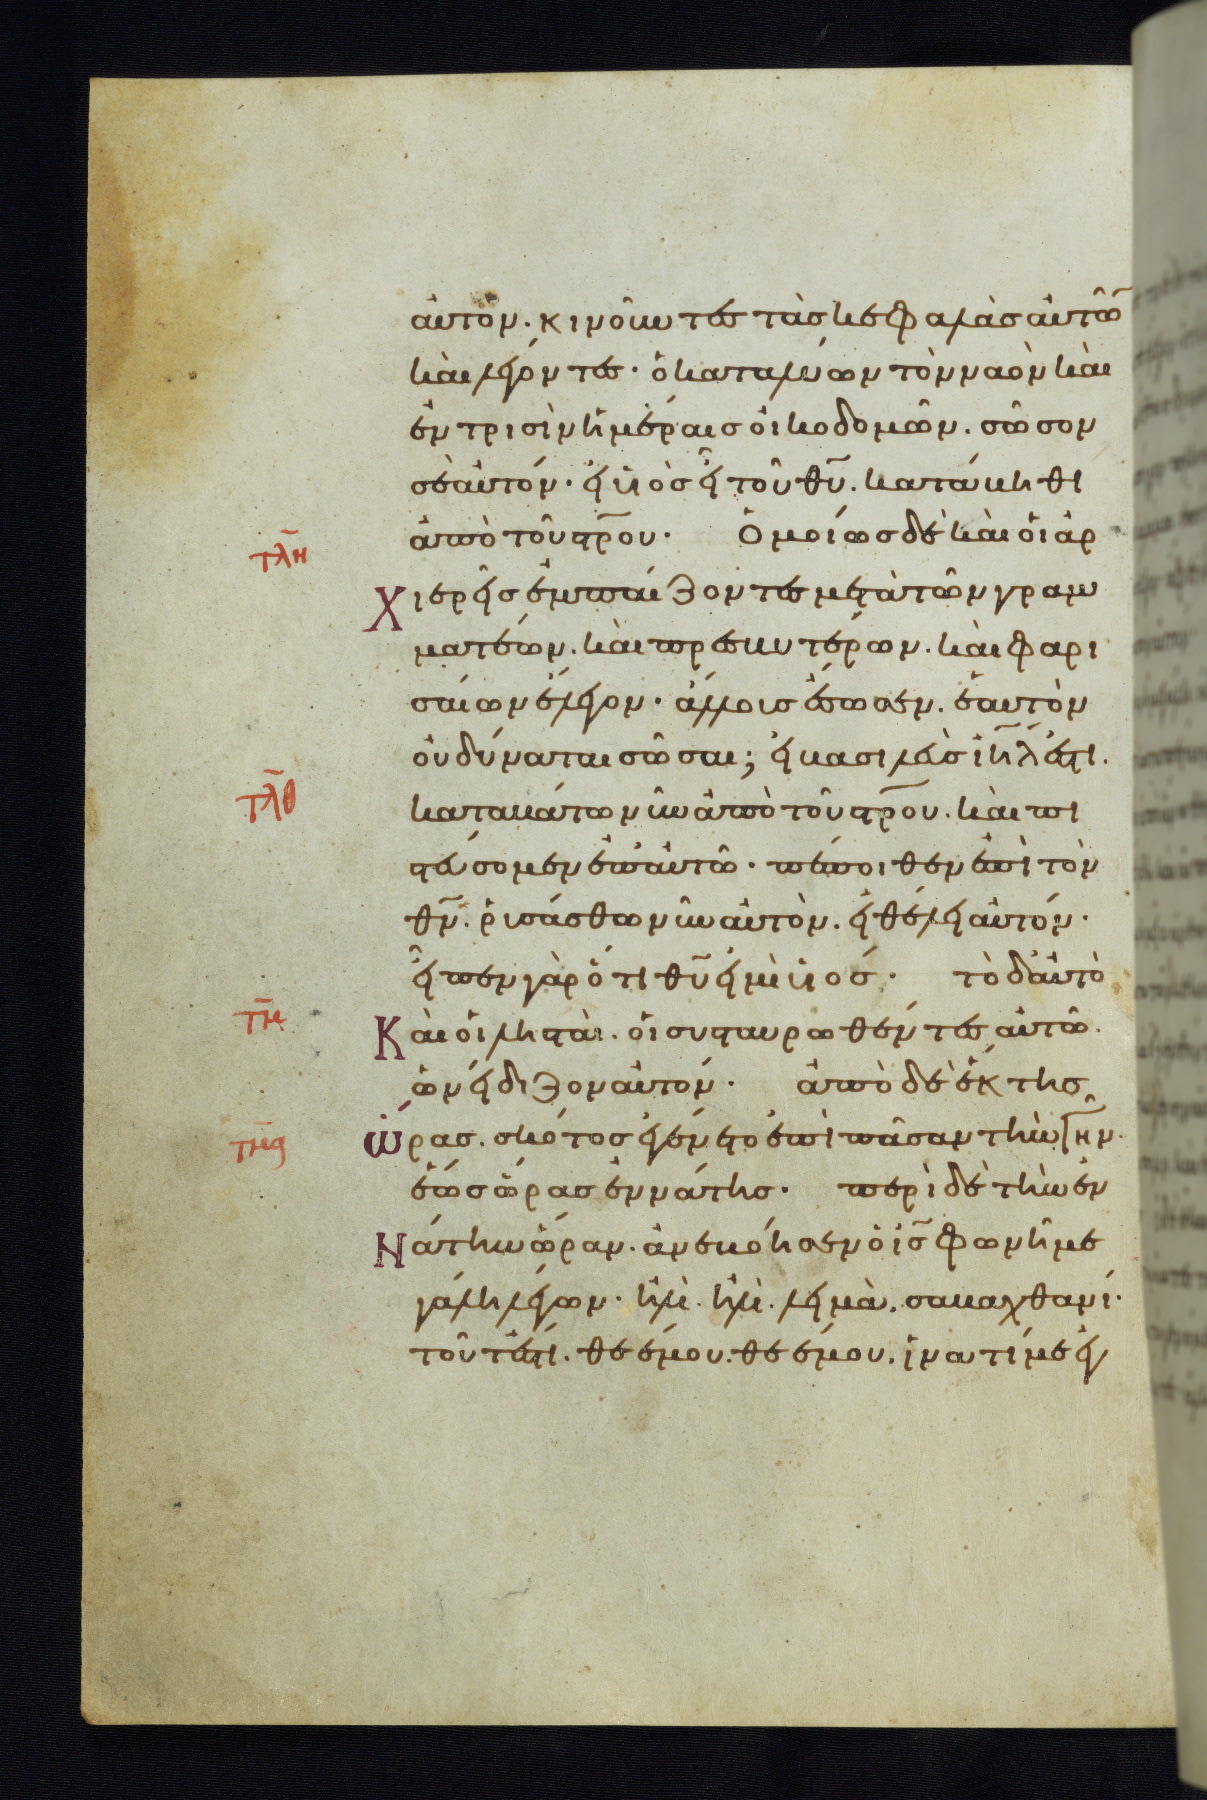 αὐτὸν· κινοῦντες τὰς κεφαλὰς αὐτῶ̃
καὶ λέγοντες· ὁ καταλύων τὸν ναὸν καὶ
ἐν τρισὶν ἡμέραις οἰκοδομῶν. σῶσον
σεαυτόν· εἰ υἱὸς εἶ τοῦ θυ̃. κατάβηθι
ἀπὸ τοῦ στρ̅ου· Ὁμοίως δὲ καὶ οἱ ἀρ
τλη
χιερεῖς ἐμπαίζοντες μετὰ τῶν γραμ
ματέων. καὶ πρεσβυτέρων. καὶ φαρι
σαίων ἔλεγον· ἄλλοις ἔσωσεν. ἑαυτὸν
οὐ δύναται σῶσαι; εἰ βασιλεὺς ἰη̅λ ἐστι.
τλθ
καταβάτω νῦν ἀπὸ τοῦ στρ̅ου. καὶ πι
στεύσομεν ἐπ' αὐτῶ· πέποιθεν ἐπὶ τὸν
θν̅. ῥυσάσθω νῦν αὐτὸν. εἰ θέλει αὐτόν·
εἶπεν γὰρ ὅτι θυ̅ εἰμὶ υἱός· τὸ δ' αὐτὸ
τμ
Καὶ οἱ λησταὶ. οἱ συσταυρωθέντες αὐτῶ.
ὠνείδιζον αὐτόν· ἀπὸ δὲ ἕκτης
τμα
ὥρας. σκότος ἐγένετο ἐπὶ πᾶσαν τὴν γῆν.
ἕως ὥρας ἐννάτης· περὶ δὲ τὴν ἐν
Νάτην ὥραν. ἀνεβόησεν ὁ ις̅ φωνῆ με
γάλη λέγων· ἠλὶ. ἠλὶ. λειμὰ. σαβαχθανί·
τοῦτ' ἔστι. θεέ μου. θεέ μου. ἱνατί με ἐγ